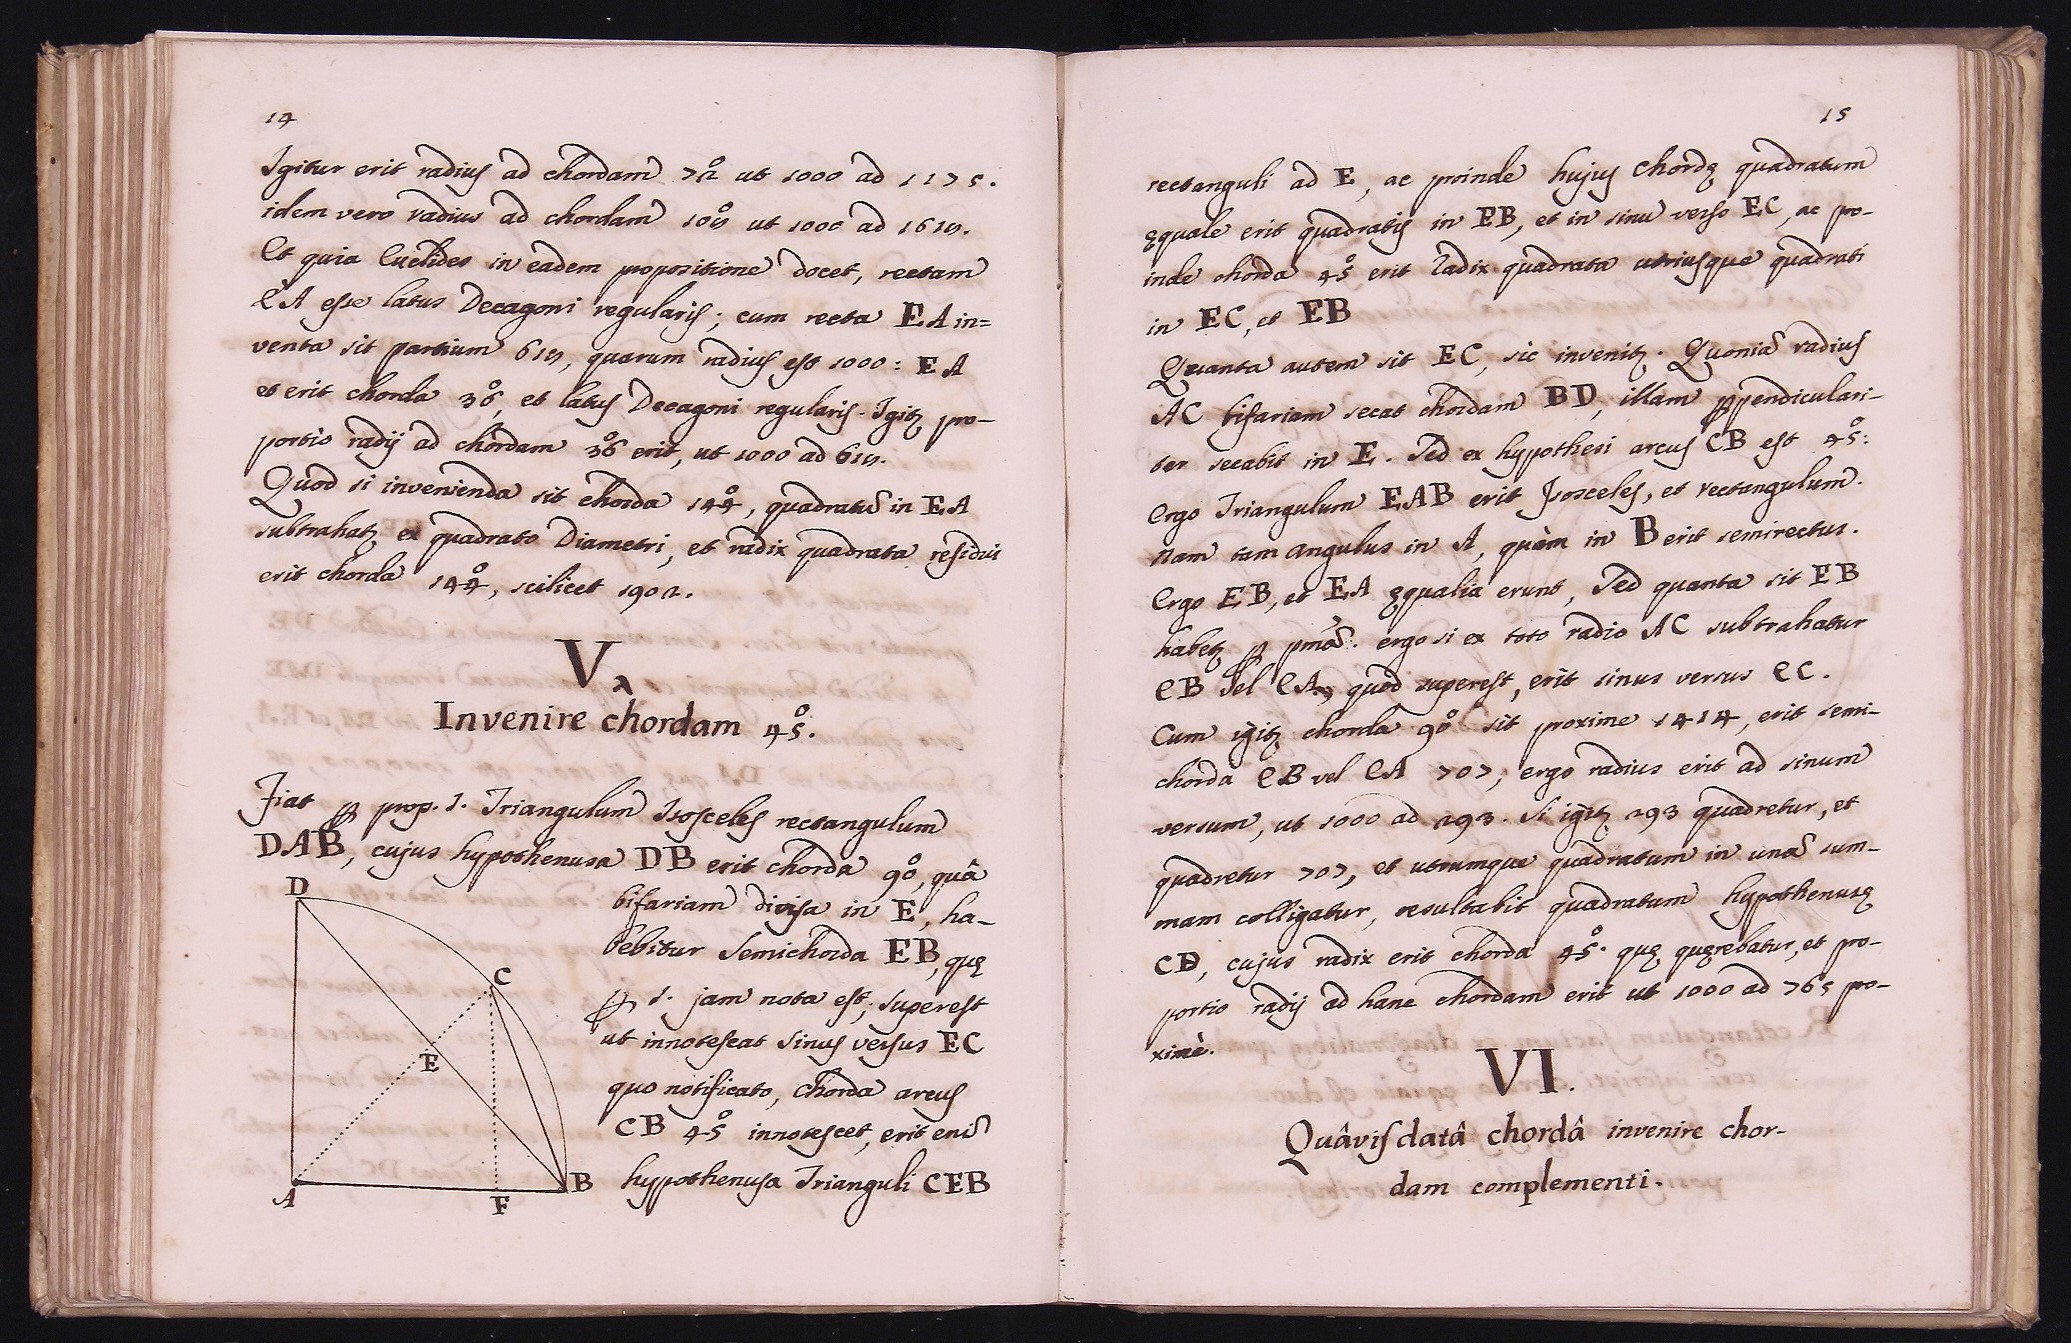 14
Igitur erit radius ad chordam 72° ut 1000 ad 1175.
idem vero radius ad chordam 108° ut 1000 ad 1618.
Et quia Euclides in eadem propositione docet, rectam
EA esse latus Decagoni regularis; cum recta EA in=
venta sit partium 618, quarum radius est 1000: EA
et erit chorda 36°, et latus Decagoni regularis. Igitʒ pro-
portio radij ad chordam 36° erit, ut 1000 ad 618.
Quod si invenienda sit chorda 144°, quadratũ in EA
subtrahatʒ ex quadrato Diametri, et radix quadrata residui
erit chorda 144°, scilicet 1902.
V
Invenire chordam 45°.
Fiat ꝑ prop. 1. Triangulum Isosceles rectangulum
DAB, cujus hypothenusa DB erit chorda 90°, quâ
bifariam divisa in E, ha-
bebitur Semichorda EB, quę
ꝑ 1. jam nota est; superest
ut innotescat sinus versus EC
quo notificato, chorda arcus
CB 45° innotescet, erit enĩ
hypothenusa Trianguli CEB
D
C
E
A
F
B
15
rectanguli ad E, ac proinde hujus chordę quadratum
ęquale erit quadratis in EB, et in sinu verso EC, ac pro-
inde chorda 45° erit radix quadrata utriusque quadrati
in EC, et EB
Quanta autem sit EC, sic invenitʒ. Quoniã radius
AC bifariam secat chordam BD, illam ꝑpendiculari-
ter secabit in E. Sed ex hypothesi arcus CB est 45°:
Ergo Triangulum EAB erit Isosceles, et rectangulum.
Nam tam angulus in A, quàm in B erit semirectus.
Ergo EB, et EA ęqualia erunt, Sed quanta sit EB
habetʒ ꝑ pmã. ergo si ex toto radio AC subtrahatur
EB vel EA, quod superest, erit sinus versus EC.
Cum igitʒ chorda 90° sit proxime 1414, erit semi-
chorda EB vel EA 707; ergo radius erit ad sinum
versum, ut 1000 ad 293. Si igitʒ 293 quadretur, et
quadretur 707, et utrumque quadratum in unã sum-
mam colligatur, resultabit quadratum hypothenusę
CB, cujus radix erit chorda 45°. quę quęrebatur, et pro-
portio radij ad hanc chordam erit ut 1000 ad 765 pro-
ximè.
VI.
Quâvis datâ chordâ invenire chor-
dam complementi.